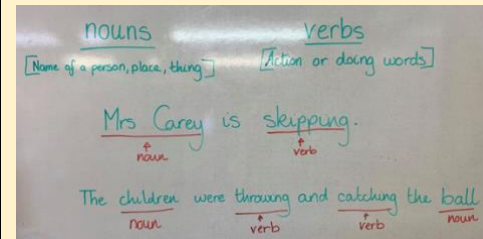 nouns verbs
[Name of a person, place, thing] [Action or doing words]
Mrs Carey is skipping.
noun verb
The children were throwing and catching the ball
noun verb verb noun